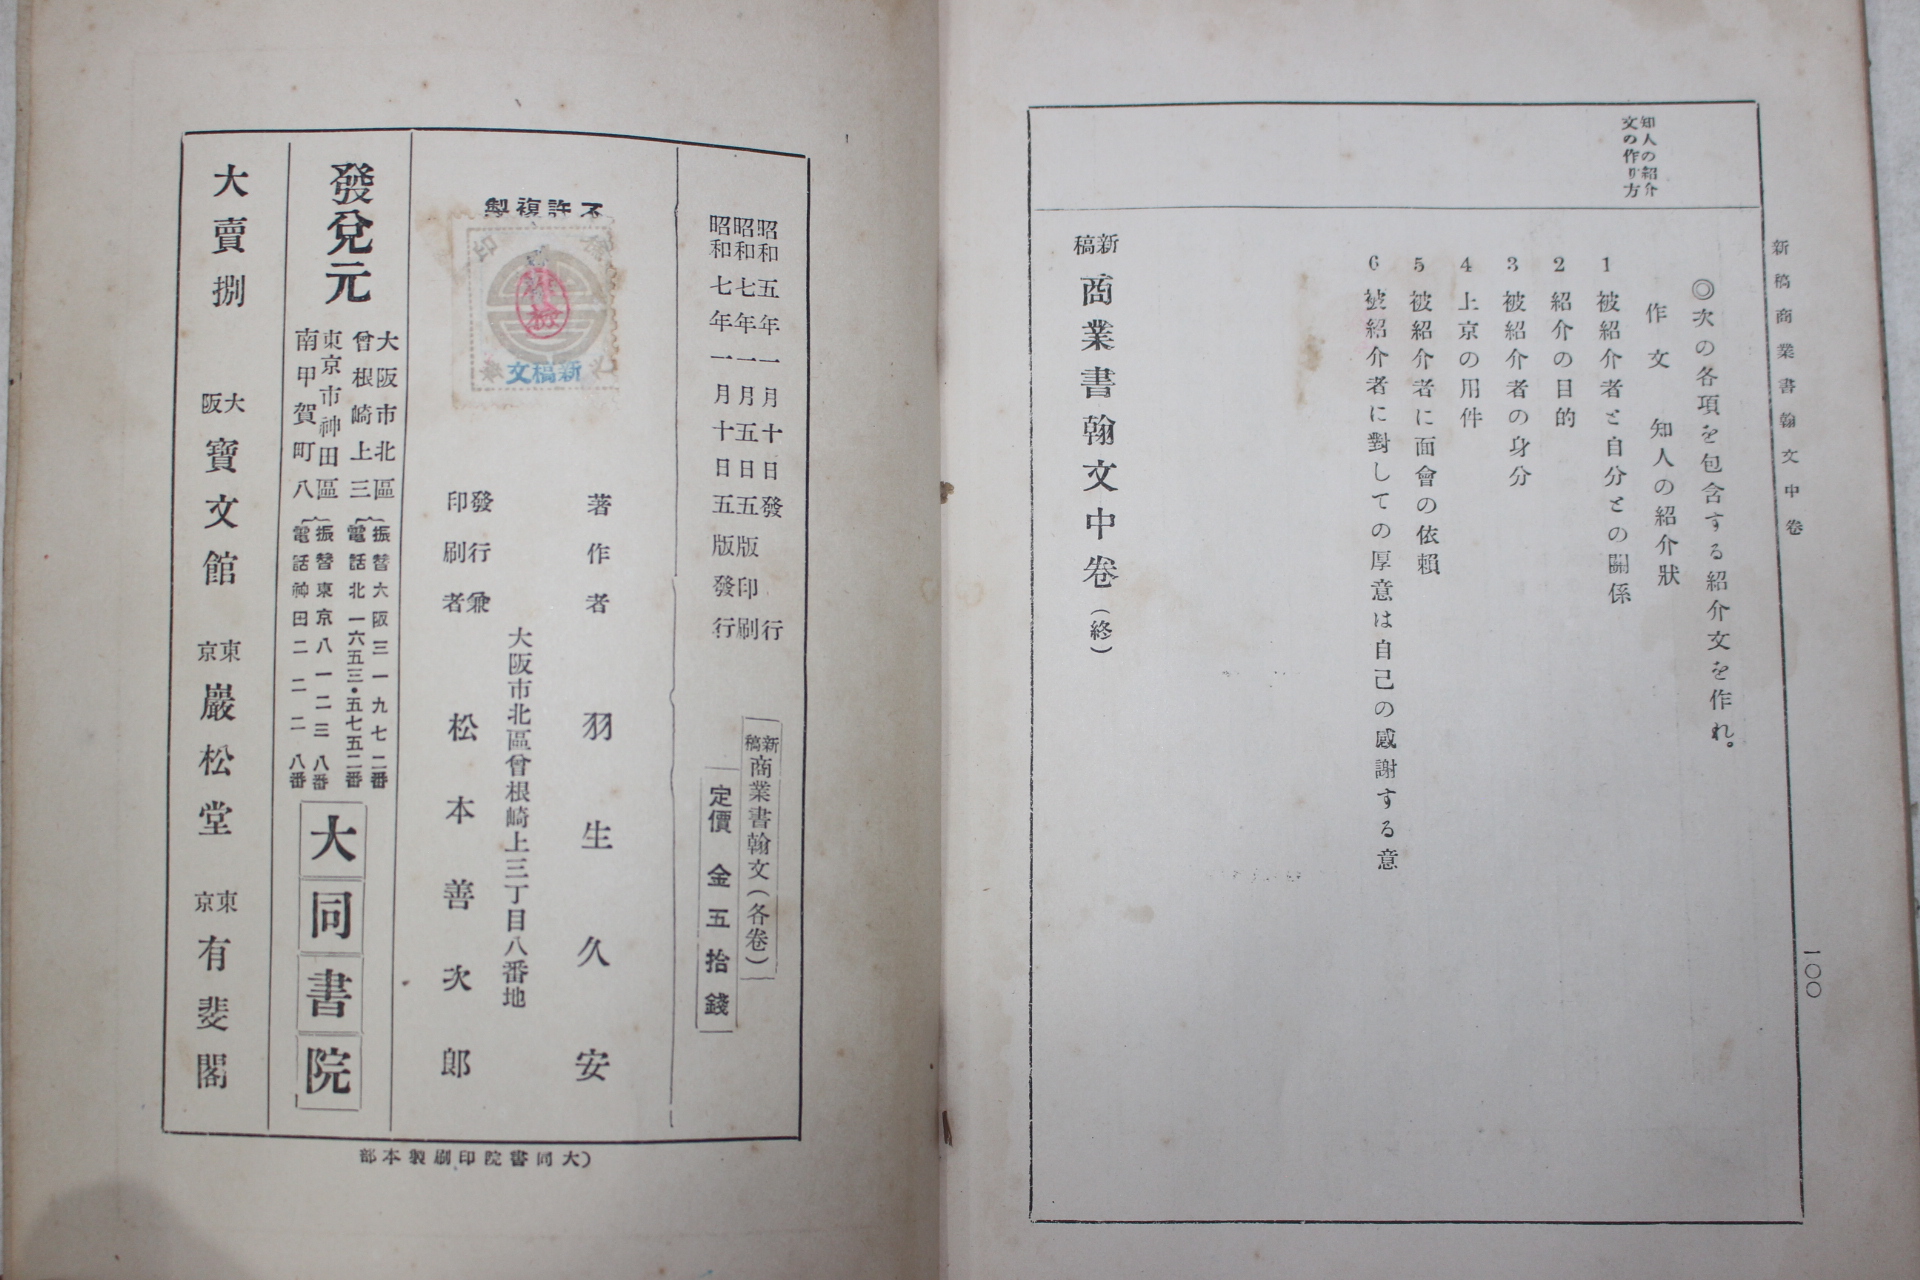 新稿商業書翰文中卷
一〇〇
知人の紹介
文の作り方
◎次の各項を包含する紹介文を作れ。
作文 知人の紹介狀
1 被紹介者と自分との關係
2 紹介の目的
3 被紹介者の身分
4 上京の用件
5 被紹介者に面會の依賴
6 被紹介者に對しての厚意は自己の感謝する意
新稿 商業書翰文中卷(終)
昭和五年一月十日發行
昭和七年一月五日五版印刷
昭和七年一月十日五版發行
新稿商業書翰文(各卷)
定價 金五拾錢
不許複製
新稿文
著作者 羽生久安
大阪市北區曾根崎上三丁目八番地
發行兼
印刷者 松本善次郎
發兌元
大阪市北區
曾根崎上三
振替大阪三一九七二番
電話北一六五三・五七五二番
東京市神田區
南甲賀町八
振替東京八一二三八番
電話神田二二二八番
大同書院
大賣捌
大阪 寶文館
東京 巖松堂
東京 有斐閣
(大同書院印刷製本部